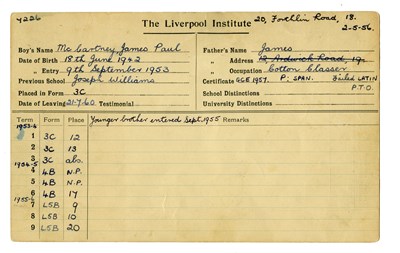 4226
The Liverpool Institute
20, Forthlin Road, 18.
2-5-56.
Boy's Name McCartney, James Paul
Date of Birth 18th June 1942
" Entry 9th September 1953
Previous School Joseph Williams
Placed in Form 3C
Date of Leaving 21-7-60 Testimonial
Father's Name James
" Address 12, Ardwick Road, 19.
" Occupation Cotton Classer
Certificate GCE 1957. P: SPAN. Failed LATIN
P.T.O.
School Distinctions
University Distinctions
Term Form Place Younger brother entered Sept. 1955 Remarks
1953-4
1 3C 12
2 3C 13
3 3C abs.
1954-5
4 4B N.P.
5 4B N.P.
6 4B 17
1955-6
7 L5B 9
8 L5B 10
9 L5B 20